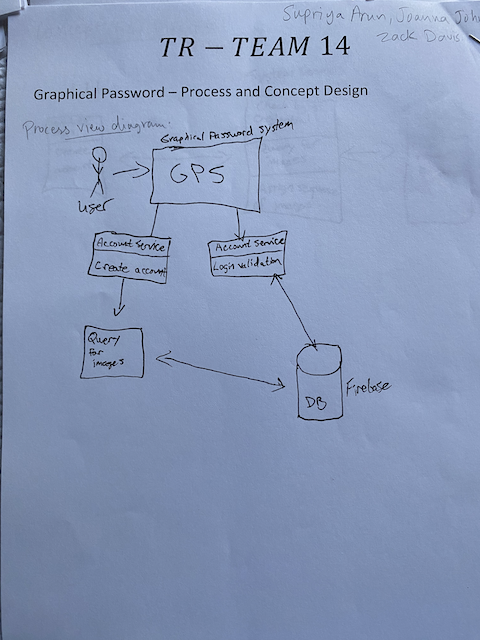 Supriya Arun, Joanna Joh
Zack Davis
TR – TEAM 14
Graphical Password – Process and Concept Design
Process view diagram:
Graphical Password System
GPS
User
Account Service
Create account
Account Service
Login validation
Query
for
images
DB
Firebase